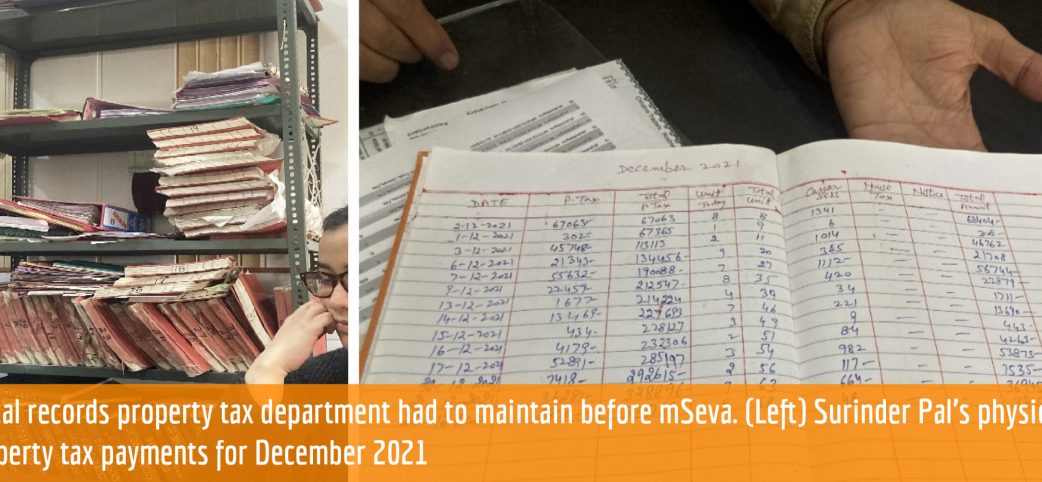 Accountant
December 2021
DATE P.Tax Total P.Tax Unit Today Total Unit Cancer Cess House Tax Notice Total Amount
2-12-2021 67063- 67063 8 8 1341 — — 68404-
1-12-2021 302- 67365 1 9 6 — — 308-
3-12-2021 45748- 113113 2 11 1014 — — 46762
6-12-2021 21343- 134456- 9 20 365 — — 21708
7-12-2021 55632- 190088- 7 27 1112- — — 56744-
9-12-2021 22459- 212547- 8 35 420 — — 22879-
13-12-2021 1677 214224 4 39 34 — — 1711-
14-12-2021 13469- 227693 7 46 221 — — 13690-
15-12-2021 434- 228127 3 49 9 — — 443-
16-12-2021 4179- 232306 2 51 84 — — 4263-
17-12-2021 52891- 285197 3 54 982 — — 53873-
7418- 292615- 2 56 117- — — 7535-
664-
al records property tax department had to maintain before mSeva. (Left) Surinder Pal's physi
perty tax payments for December 2021